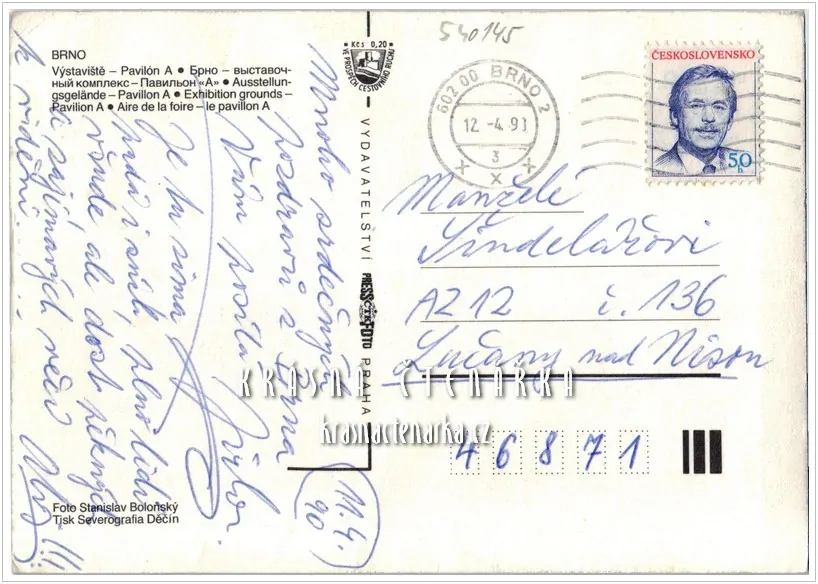 540145
BRNO
Výstaviště – Pavilón A ● Брно – выставоч-
ный комплекс – Павильон «А» ● Ausstellun-
gsgelände – Pavillon A ● Exhibition grounds –
Pavilion A ● Aire de la foire – le pavillon A
Kčs 0,20
VE PROSPĚCH CESTOVNÍHO RUCHU
602 00 BRNO 2
12. -4. 90
3
ČESKOSLOVENSKO
50 h
VYDAVATELSTVÍ PRESSFOTO PRAHA
ČTK
Manželé
Šindelářovi
AZ 12 č. 136
Lučany nad Nisou
46871
Mnoho srdečných
pozdravů z Brna
Vám posílá
Je tu zima
padá i sníh, plno lidí
všude ale dost pěkných
a zajímavých věcí
k vidění....
11.4.
90
KRÁSNÁ ČTENÁŘKA
krasnactenarka.cz
Foto Stanislav Boloňský
Tisk Severografia Děčín